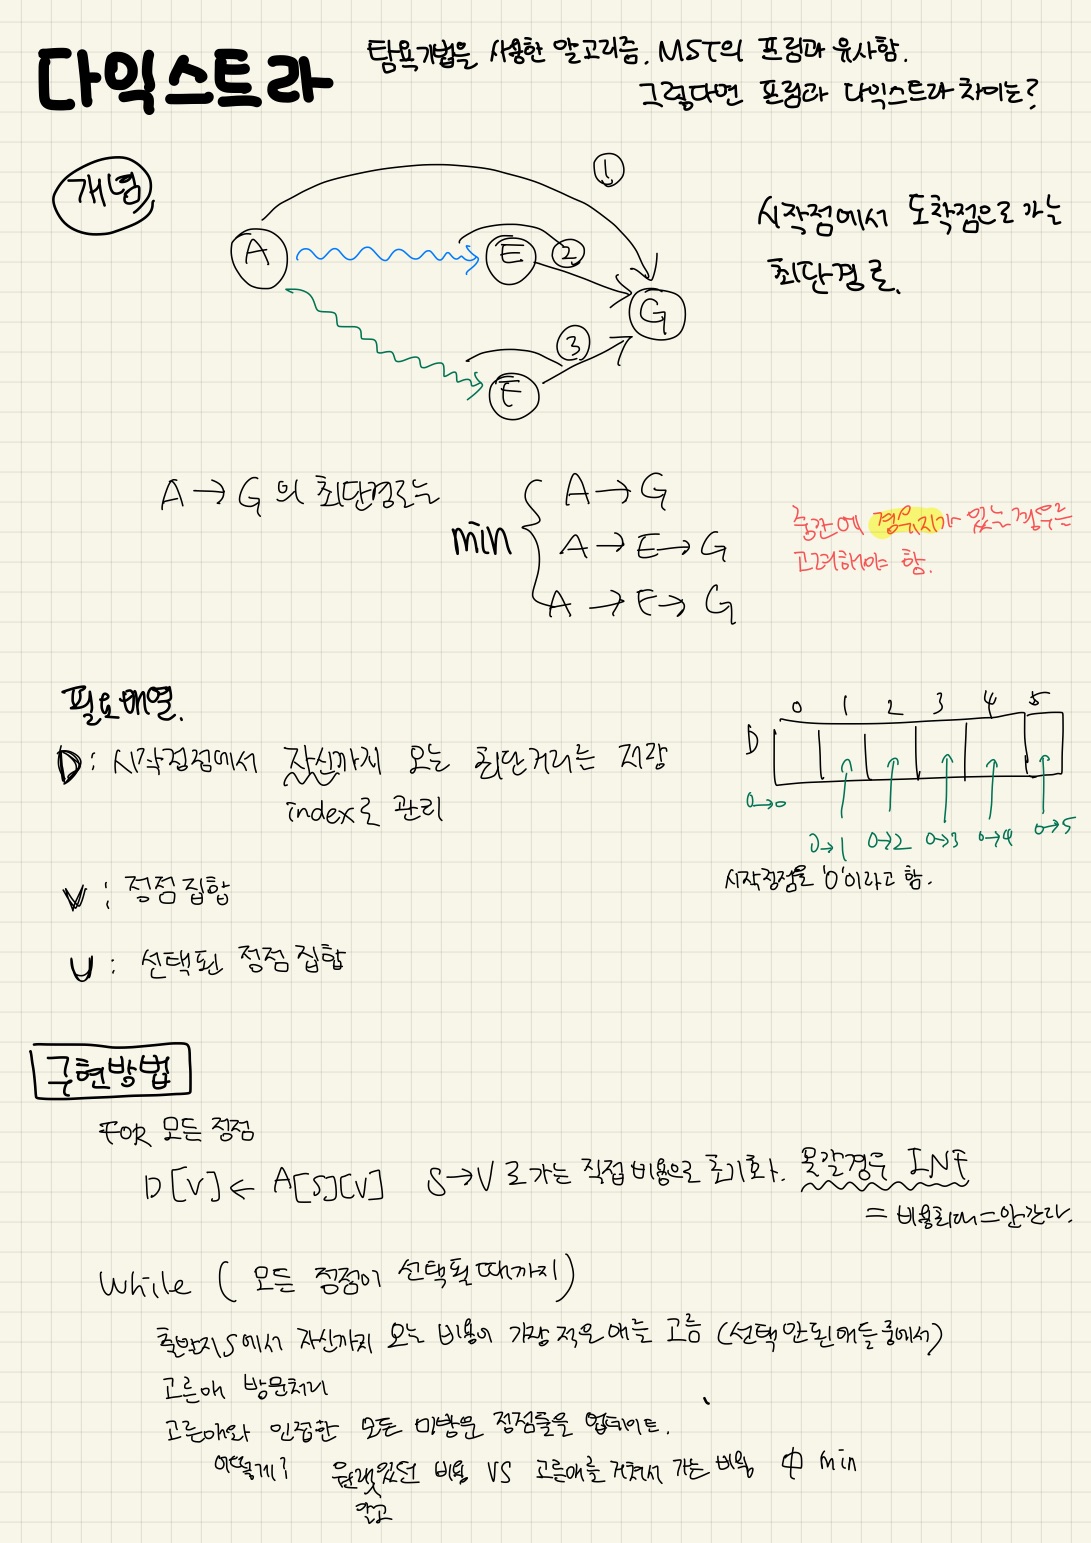 다익스트라
탐욕기법을 사용한 알고리즘. MST의 프림과 유사함.
그렇다면 프림과 다익스트라 차이는?
개념
①
A
E
②
G
③
F
시작점에서 도착점으로 가는
최단경로.
A → G 의 최단경로는
min
A → G
A → E → G
A → F → G
중간에 경유지가 있는 경우는
고려해야 함.
필요배열.
D : 시작정점에서 자신까지 오는 최단거리는 저장
index로 관리
V : 정점 집합
U : 선택된 정점 집합
0 1 2 3 4 5
D
0→0
0→1 0→2 0→3 0→4 0→5
시작정점을 '0'이라고 함.
구현방법
FOR 모든 정점
D[V] ← A[S][V] S→V로 가는 직접 비용으로 초기화. 못갈경우 INF
= 비용최대=안간다.
While ( 모든 정점이 선택될때까지 )
출발지S에서 자신까지 오는 비용이 가장 적은 애를 고름 (선택 안된애들 중에서)
고른애 방문처리
고른애와 인접한 모든 미방문 정점들을 업데이트.
어떻게? 원래 있던 비용 VS 고른애를 거쳐서 가는 비용 中 min
알고